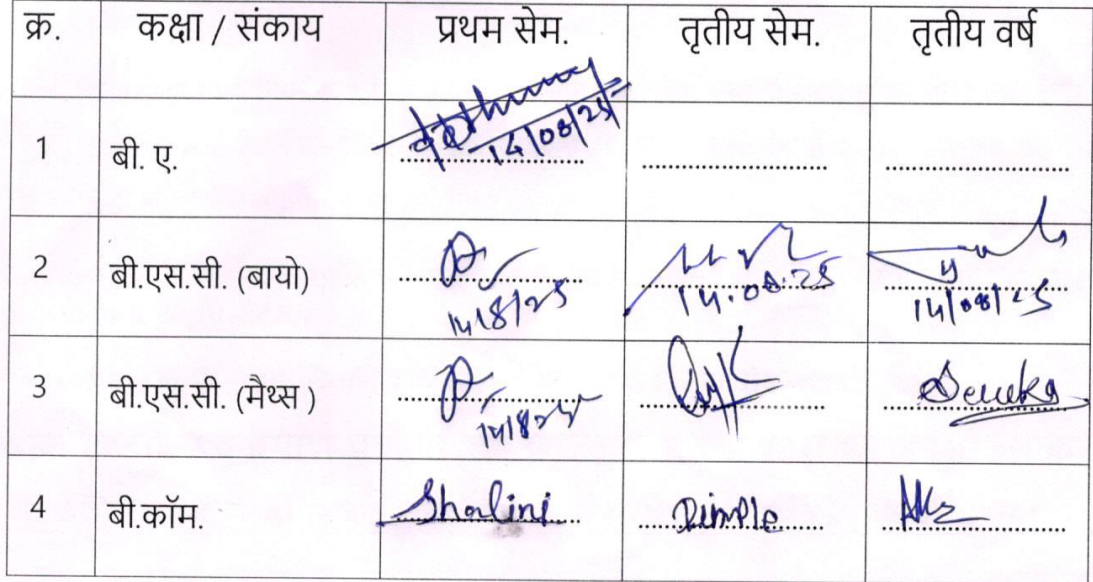 क्र. कक्षा / संकाय प्रथम सेम. तृतीय सेम. तृतीय वर्ष
1 बी. ए. 14/08/25
2 बी.एस.सी. (बायो) 14/8/25 14.08.25 14/08/25
3 बी.एस.सी. (मैथ्स )
4 बी.कॉम. Shalini Dimple